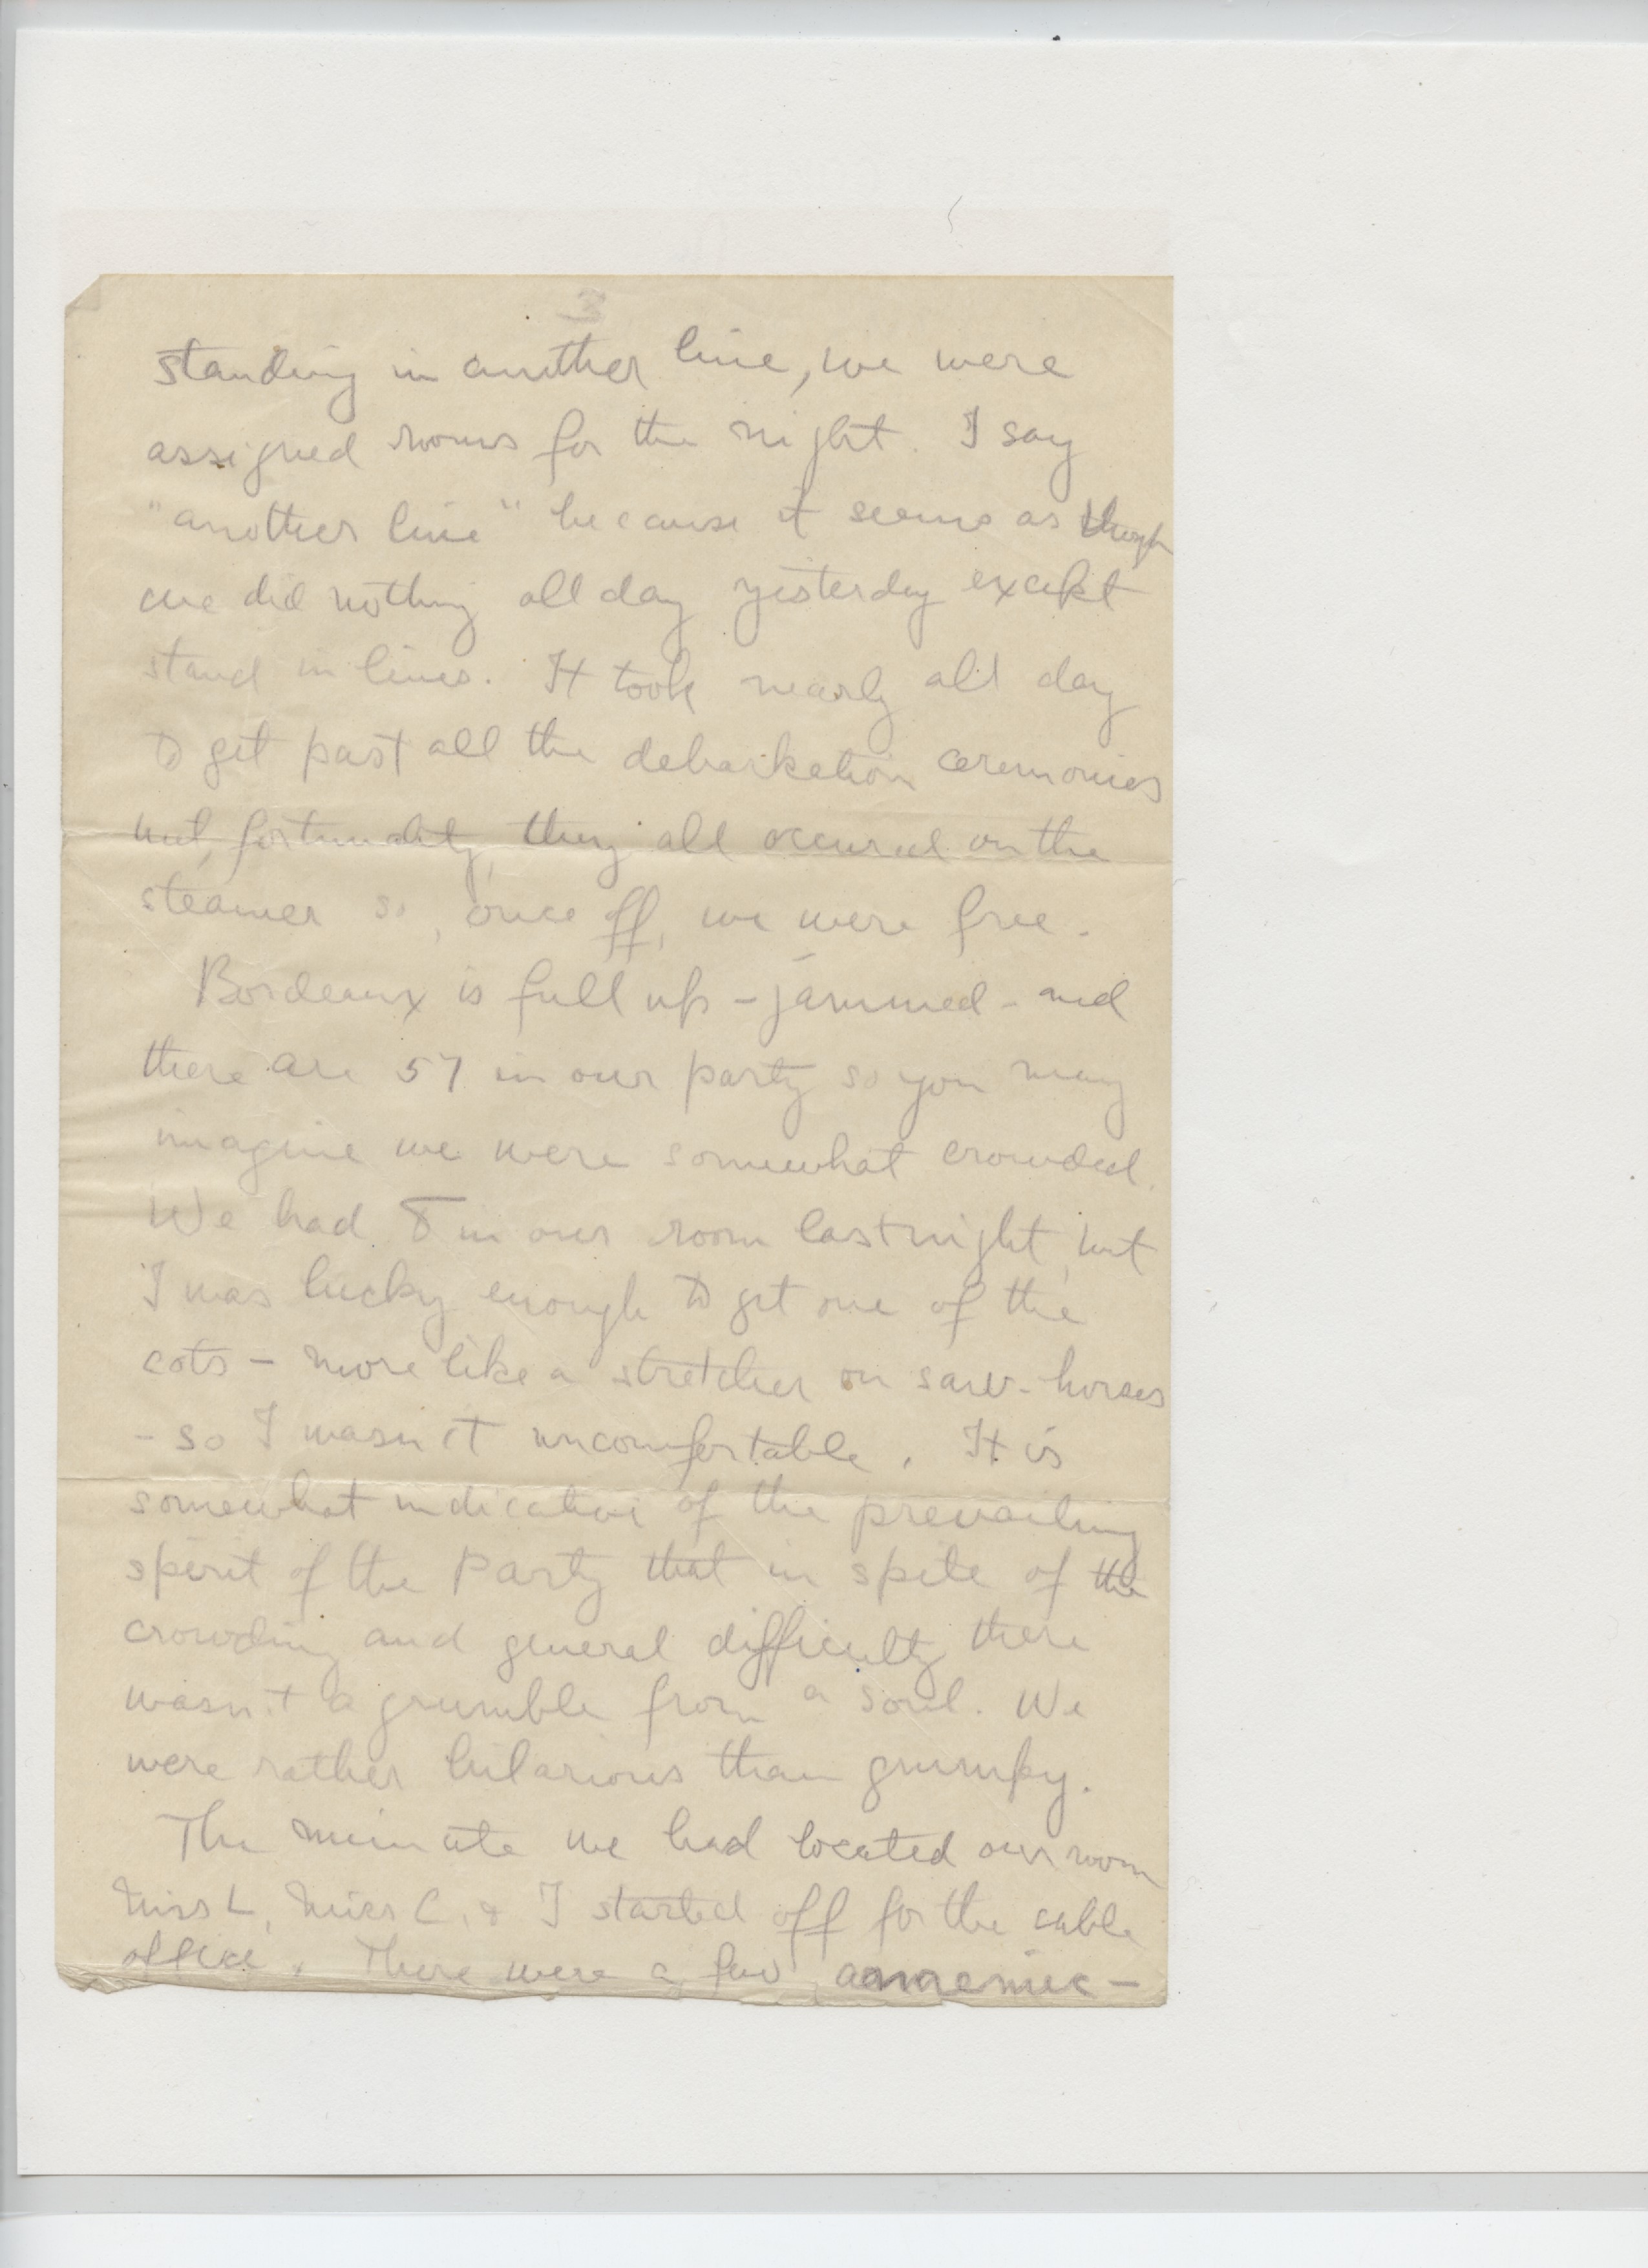 3
standing in another line, we were
assigned rooms for the night. I say
"another line" because it seems as though
we did nothing all day yesterday except
stand in lines. It took nearly all day
to get past all the debarkation ceremonies
but, fortunately, they all occured on the
steamer so, once off, we were free.
Bordeaux is full up - jammed - and
there are 57 in our party so you may
imagine we were somewhat crowded.
We had 8 in our room last night, but
I was lucky enough to get one of the
cots - more like a stretcher on saw-horses
- so I wasn't uncomfortable. It is
somewhat indicative of the prevailing
spirit of the Party that in spite of the
crowding and general difficulty there
wasn't a grumble from a soul. We
were rather hilarious than grumpy.
The minute we had located our room
Miss L, Miss C. & I started off for the cable
office. There were a few anaemic-